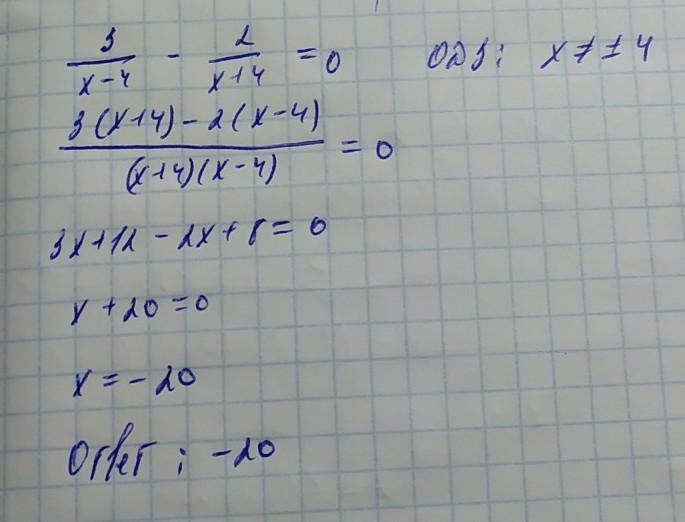 3/(x-4) - 2/(x+4) = 0 ОДЗ: x ≠ ± 4
(3(x+4) - 2(x-4))/((x+4)(x-4)) = 0
3x+12 - 2x+8 = 0
x + 20 = 0
x = - 20
Ответ: -20